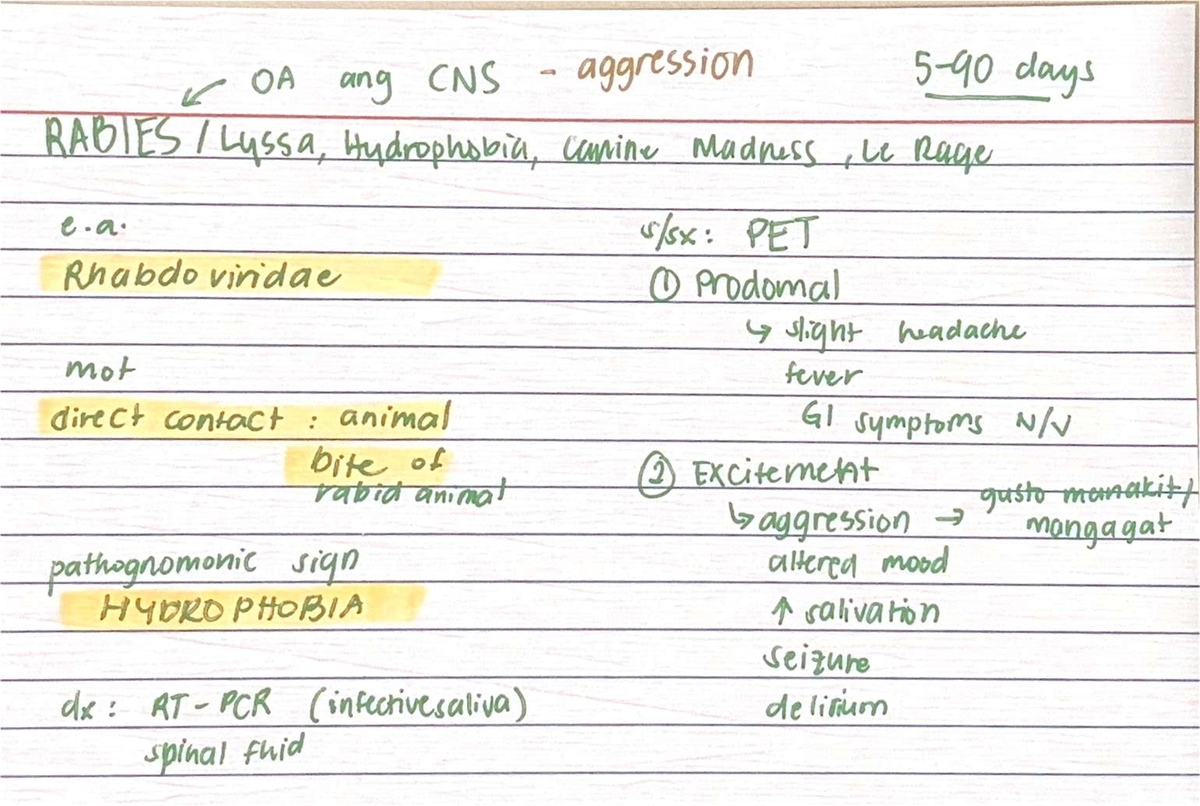 OA ang CNS - aggression
5-90 days
RABIES / Lyssa, Hydrophobia, Canine Madness, Le Rage
e.a.
Rhabdoviridae
mot
direct contact : animal
bite of
rabid animal
pathognomonic sign
HYDROPHOBIA
dx : RT-PCR (infective saliva)
spinal fluid
s/sx : PET
① Prodomal
↳ slight headache
fever
GI symptoms N/V
② Excitement
↳ aggression → gusto manakit/
mangagat
altered mood
↑ salivation
seizure
delirium